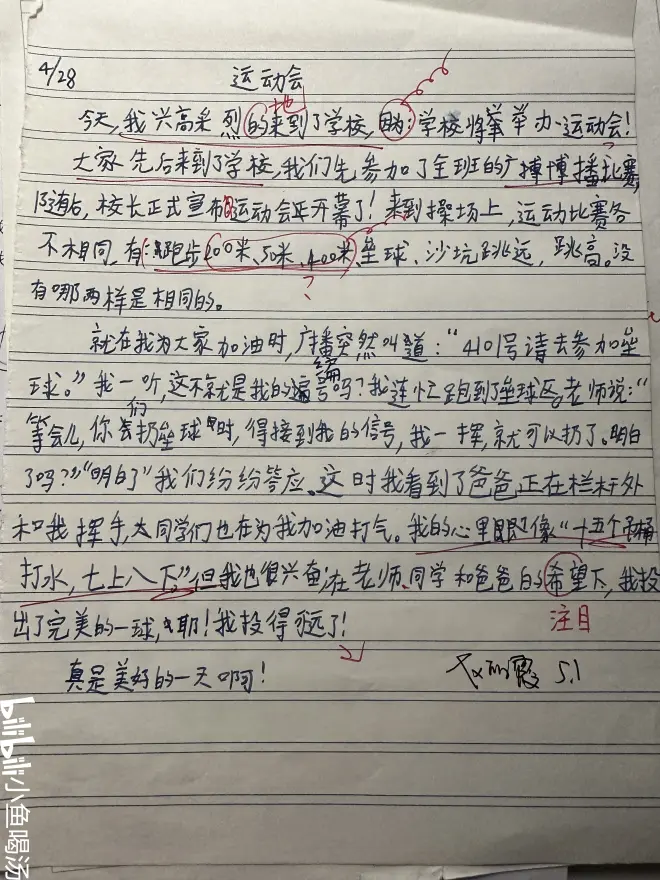 4/28 运动会
地
今天,我兴高采烈的来到了学校,因为:学校将举办运动会!
大家先后来到了学校,我们先参加了全班的广播比赛,
随后,校长正式宣布运动会正开幕了!来到操场上,运动比赛各
不相同,有:跑步200米、50米、400米、垒球、沙坑跳远,跳高。没
有哪两样是相同的。
就在我为大家加油时,广播突然叫道:“4101号请去参加垒
编
球。”我一听,这不就是我的编号吗?我连忙跑到了垒球区。老师说:“
们
等会儿,你去扔垒球时,得接到我的信号,我一挥,就可以扔了。明白
了吗?”“明白了”我们纷纷答应。这时我看到了爸爸正在栏杆外
和我挥手,大同学们也在为我加油打气。我的心里即像“十五个吊桶
打水,七上八下”但我也很兴奋,在老师、同学和爸爸的希望下,我投
出了完美的一球,耶!我投得可远了!
注目
真是美好的一天啊!
5.1
bilibili 小鱼喝汤